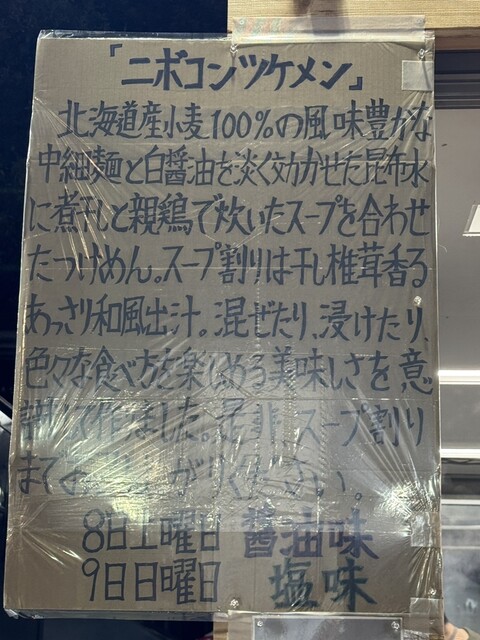 「ニボコンツケメン」
北海道産小麦100%の風味豊かな
中細麺と白醤油を淡く効かせた昆布水
に煮干しと親鶏で炊いたスープを合わせ
たつけめん。スープ割りは干し椎茸香る
あっさり和風出汁。混ぜたり、浸けたり、
色々な食べ方を楽しめる美味しさを意
識して作りました。是非、スープ割り
までお がりください。
8日土曜日 醤油味
9日日曜日 塩味